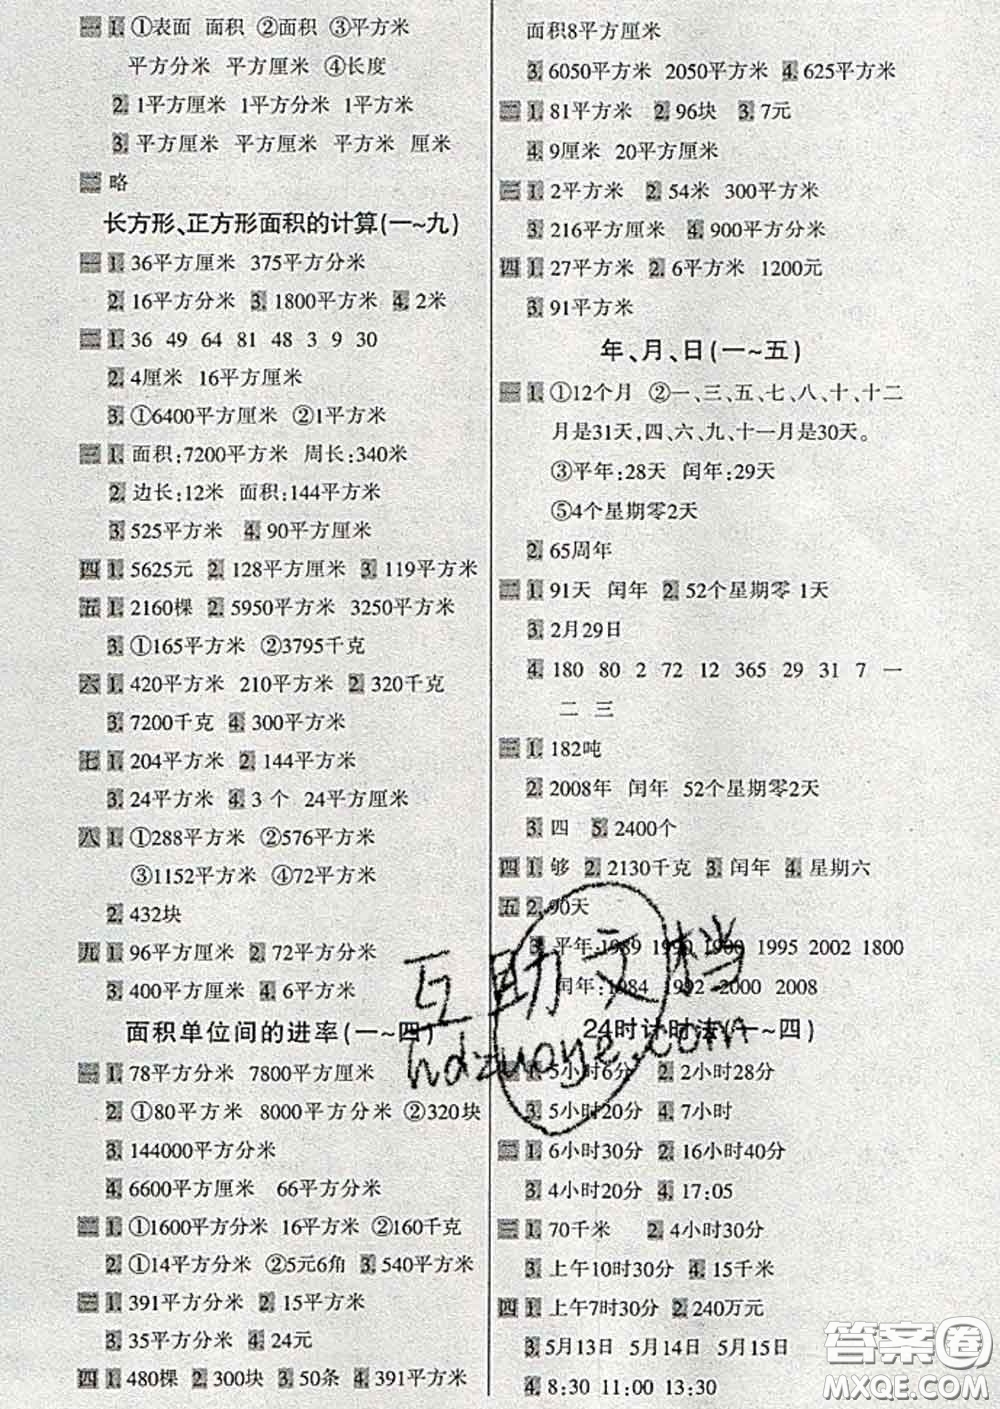 一 1. ①表面 面积 ②面积 ③平方米
平方分米 平方厘米 ④长度
2. 1平方厘米 1平方分米 1平方米
3. 平方厘米 平方米 平方米 厘米
二 略
长方形、正方形面积的计算(一~九)
一 1. 36平方厘米 375平方分米
2. 16平方分米 3. 1800平方米 4. 2米
二 1. 36 49 64 81 48 3 9 30
2. 4厘米 16平方厘米
3. ①6400平方厘米 ②1平方米
三 1. 面积:7200平方米 周长:340米
2. 边长:12米 面积:144平方米
3. 525平方米 4. 90平方厘米
四 1. 5625元 2. 128平方厘米 3. 119平方米
五 1. 2160棵 2. 5950平方米 3250平方米
3. ①165平方米 ②3795千克
六 1. 420平方米 210平方米 2. 320千克
3. 7200千克 4. 300平方米
七 1. 204平方米 2. 144平方米
3. 24平方米 4. 3个 24平方厘米
八 1. ①288平方米 ②576平方米
③1152平方米 ④72平方米
2. 432块
九 1. 96平方厘米 2. 72平方分米
3. 400平方厘米 4. 6平方米
面积单位间的进率(一~四)
一 1. 78平方分米 7800平方厘米
2. ①80平方米 8000平方分米 ②320块
3. 144000平方分米
4. 6600平方厘米 66平方分米
二 1. ①1600平方分米 16平方米 ②160千克
2. ①14平方分米 ②5元6角 3. 540平方米
三 1. 391平方分米 2. 15平方米
3. 35平方分米 4. 24元
四 1. 480棵 2. 300块 3. 50条 4. 391平方米
面积8平方厘米
3. 6050平方米 2050平方米 4. 625平方米
二 1. 81平方米 2. 96块 3. 7元
4. 9厘米 20平方厘米
三 1. 2平方米 2. 54米 300平方米
3. 216平方厘米 4. 900平方分米
四 1. 27平方米 2. 6平方米 1200元
3. 91平方米
年、月、日(一~五)
一 1. ①12个月 ②一、三、五、七、八、十、十二
月是31天,四、六、九、十一月是30天。
③平年:28天 闰年:29天
⑤4个星期零2天
2. 65周年
二 1. 91天 闰年 2. 52个星期零1天
3. 2月29日
4. 180 80 2 72 12 365 29 31 7 一
二 三
三 1. 182吨
2. 2008年 闰年 52个星期零2天
3. 四 5. 2400个
四 1. 够 2. 2130千克 3. 闰年 4. 星期六
五 2. 90天
3. 平年:1989 1990 1900 1995 2002 1800
闰年:1984 1992 2000 2008
24时计时法(一~四)
一 1. 5小时6分 2. 2小时28分
3. 5小时20分 4. 7小时
二 1. 6小时30分 2. 16小时40分
3. 4小时20分 4. 17:05
三 1. 70千米 2. 4小时30分
3. 上午10时30分 4. 15千米
四 1. 上午7时30分 2. 240万元
3. 5月13日 5月14日 5月15日
4. 8:30 11:00 13:30
互助文档
hdzuoye.com
答案圈
MXQE.COM